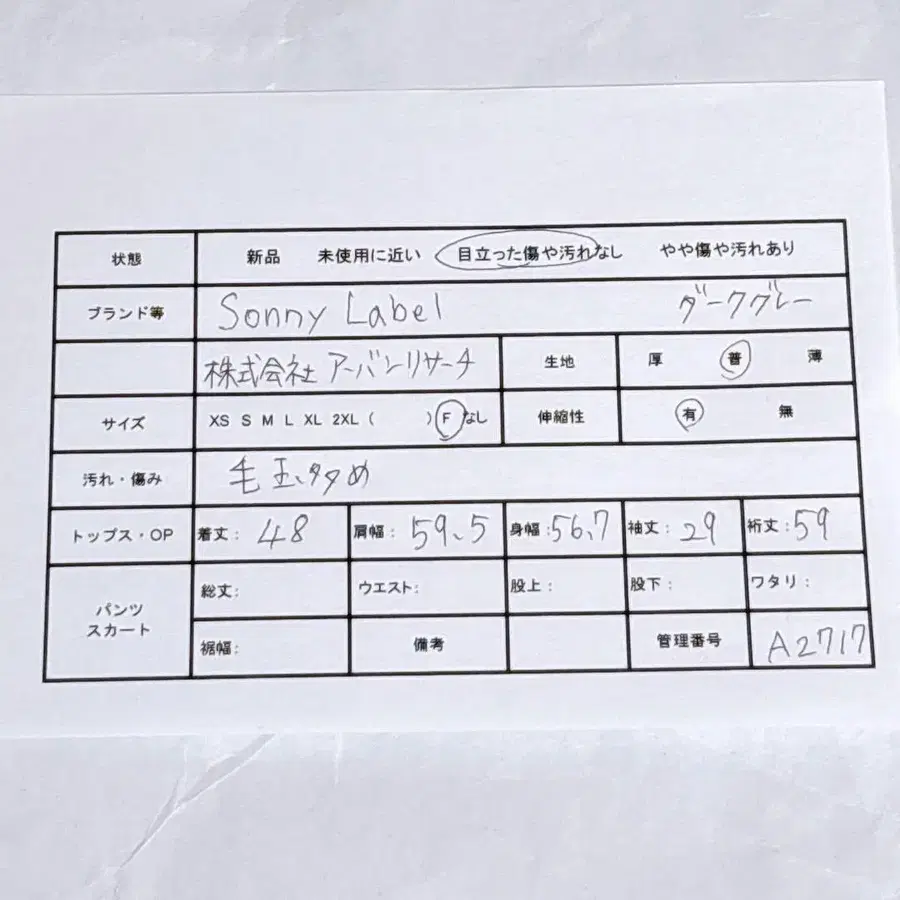 状態 新品 未使用に近い 目立った傷や汚れなし やや傷や汚れあり
ブランド等 Sonny Label ダークグレー
株式会社 アーバンリサーチ 生地 厚 普 薄
サイズ XS S M L XL 2XL ( ) F なし 伸縮性 有 無
汚れ・傷み 毛玉、多め
トップス・OP 着丈: 48 肩幅: 59、5 身幅: 56,7 袖丈: 29 裄丈: 59
パンツ スカート 総丈: ウエスト: 股上: 股下: ワタリ:
裾幅: 備考 管理番号 A2717